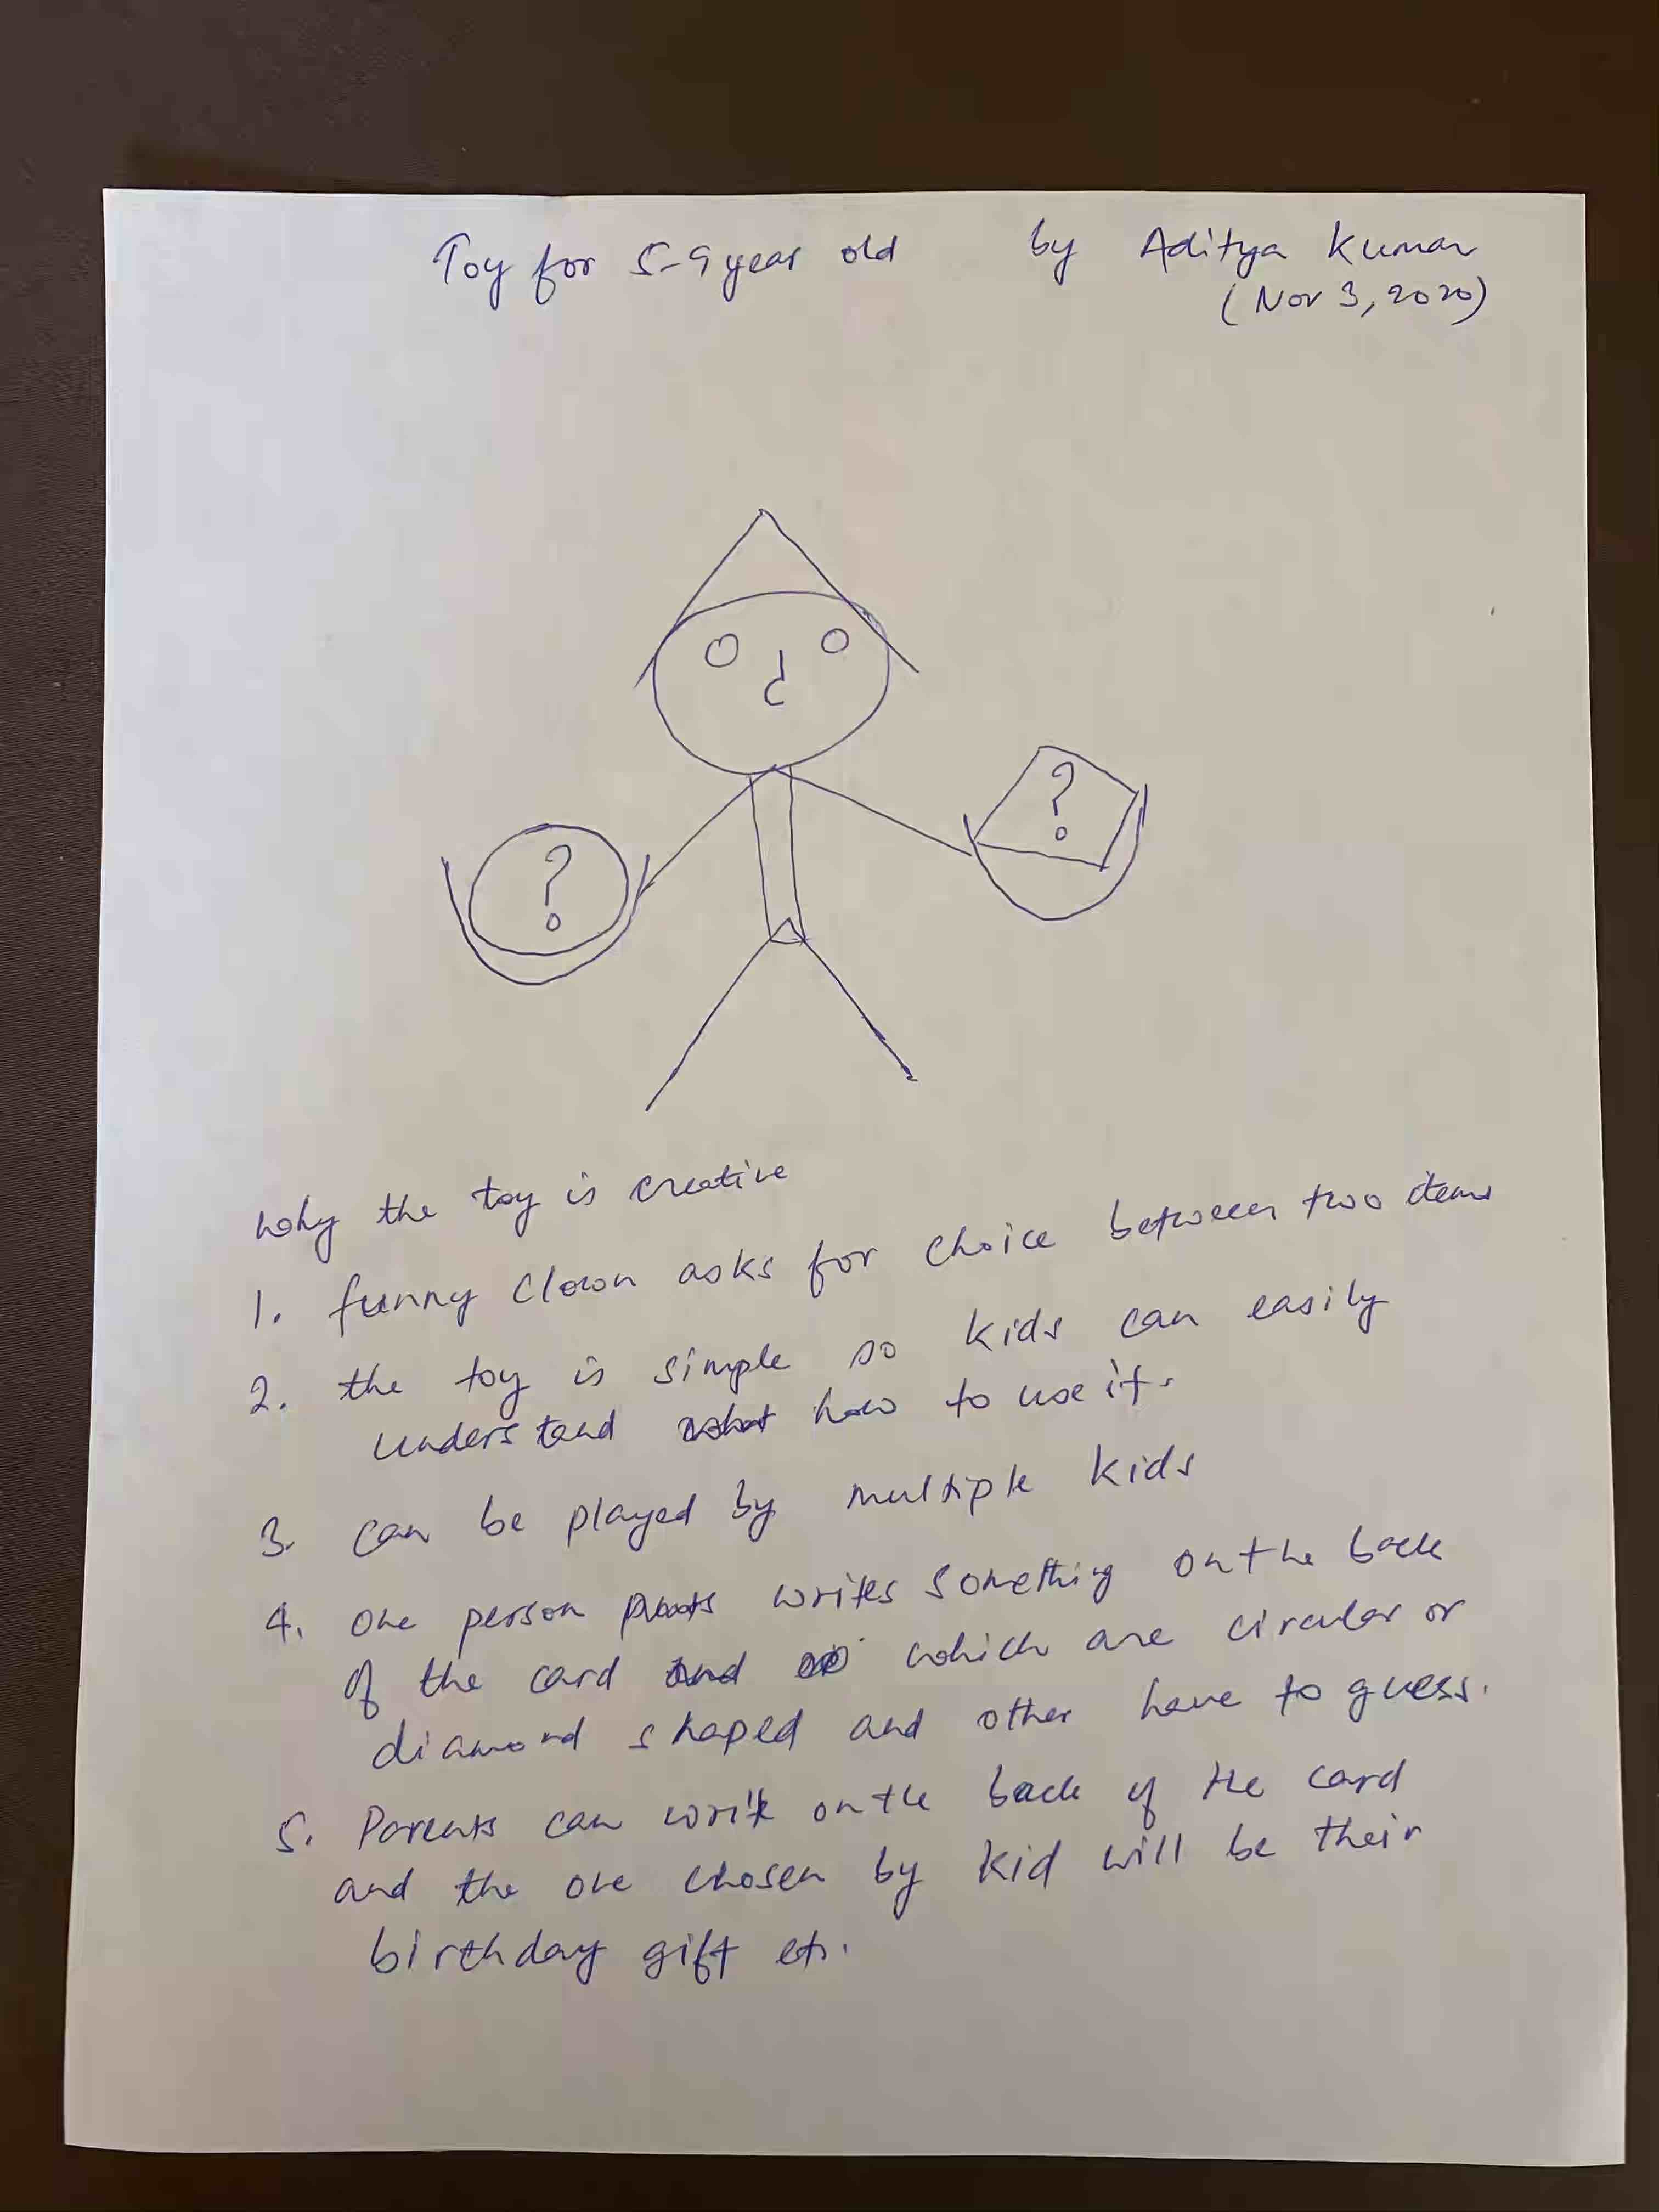 Toy for 5-9 year old by Aditya Kumar
(Nov 3, 2020)
?
?
Why the toy is creative
1. funny clown asks for choice between two items
2. the toy is simple so kids can easily
understand how to use it.
3. can be played by multiple kids
4. one person writes something on the back
of the card which are circular or
diamond shaped and other have to guess.
5. Parents can write on the back of the card
and the one chosen by kid will be their
birthday gift etc.